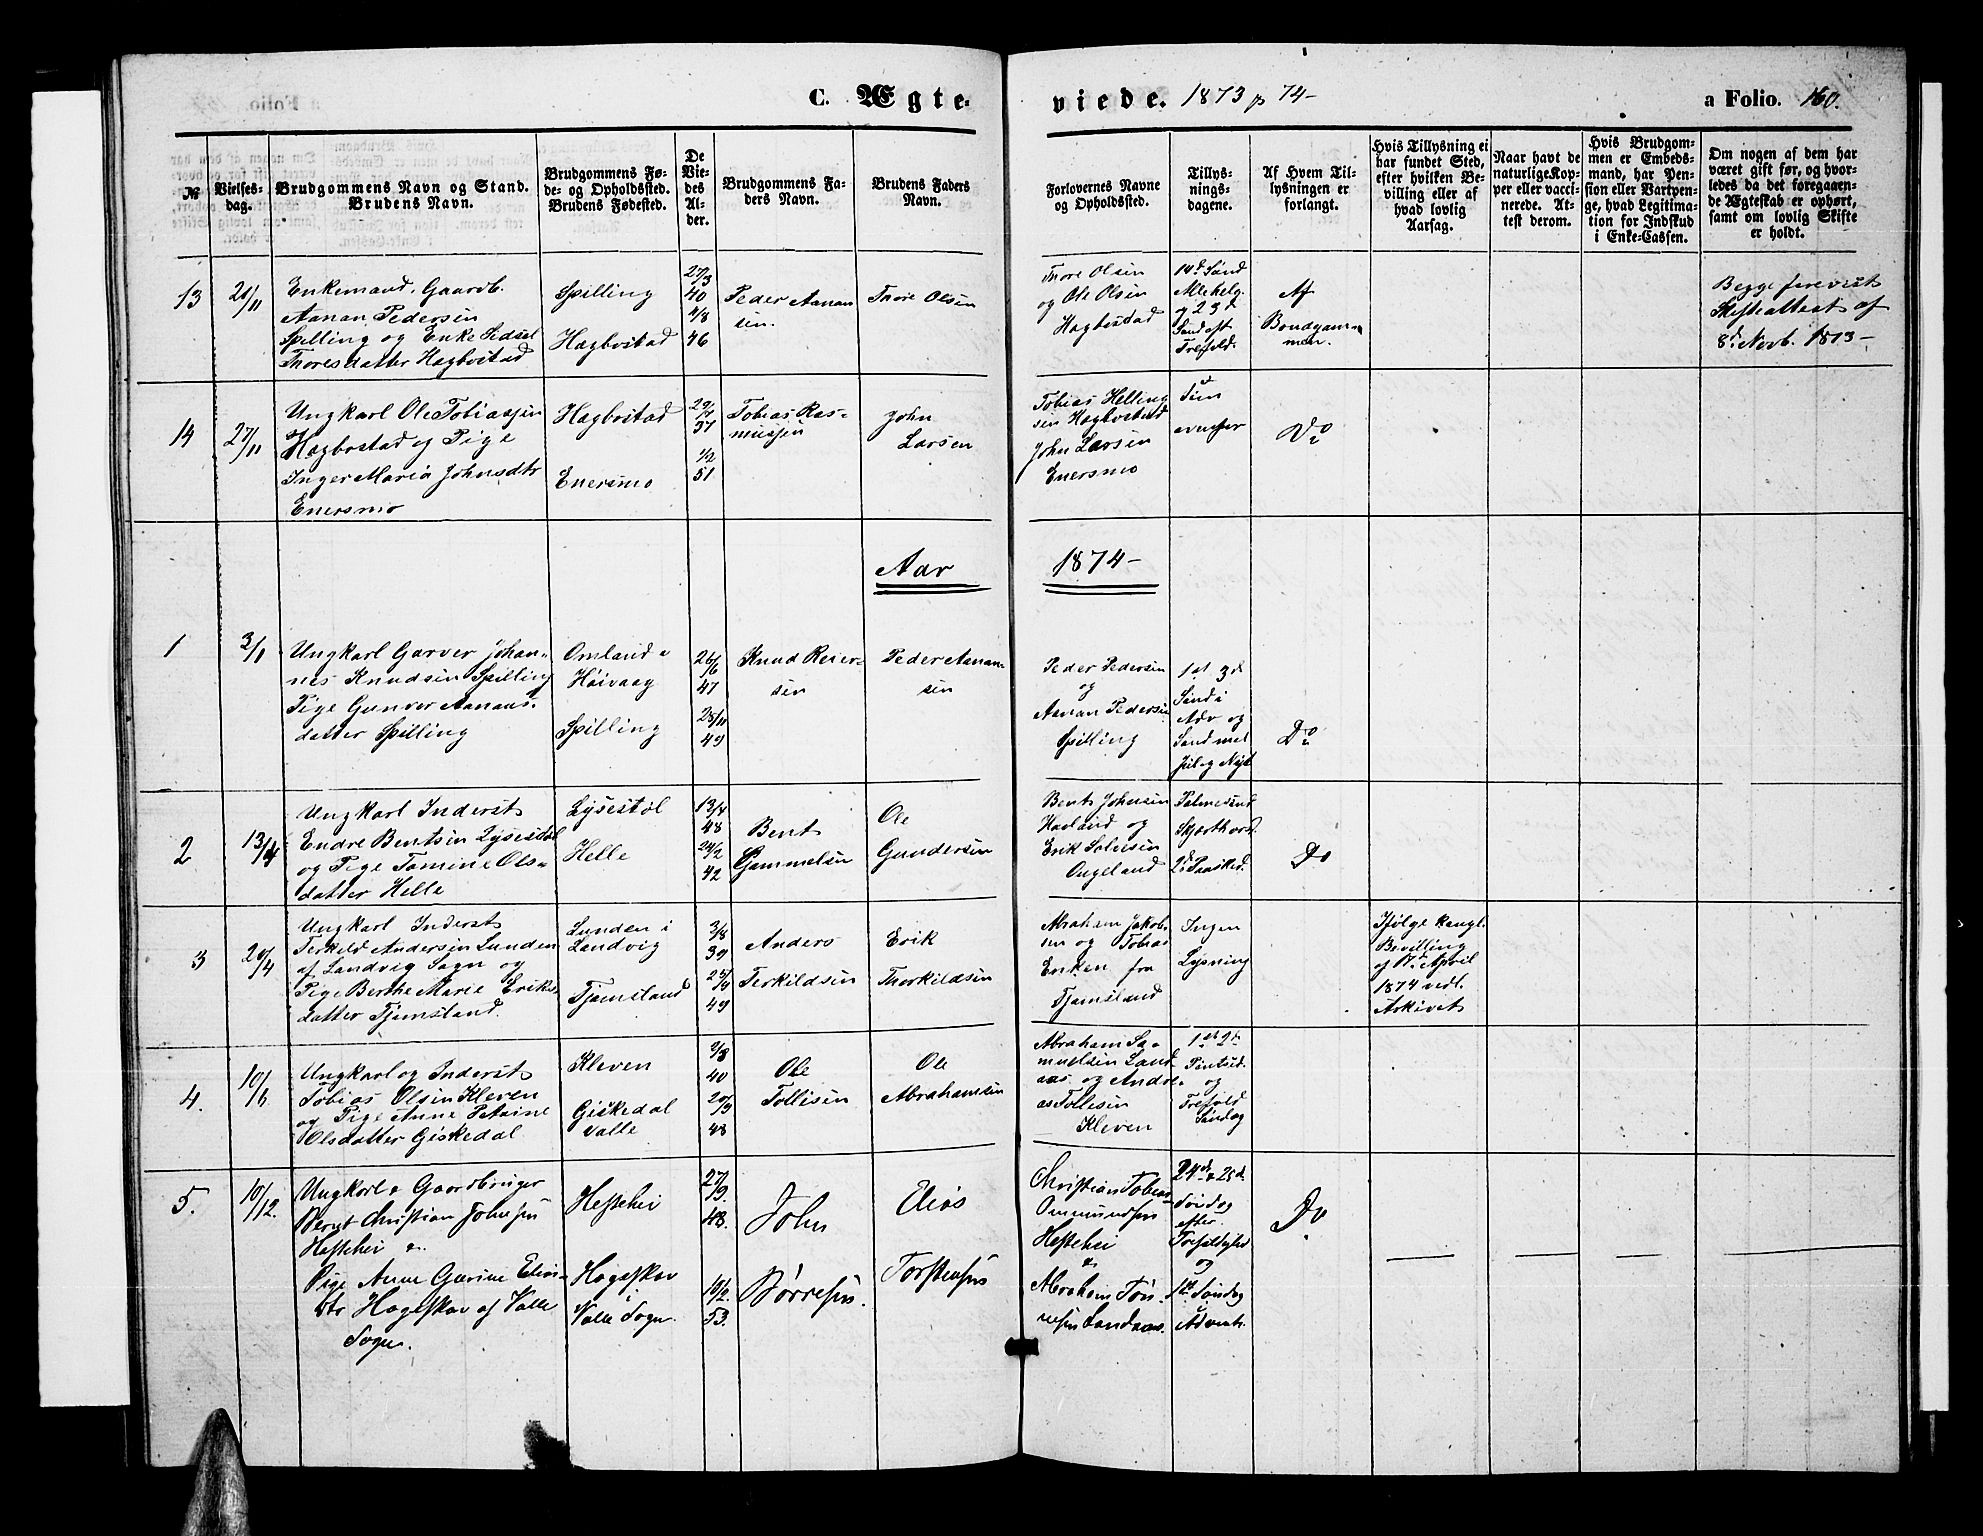 C. Ægte-
viede. 1873 p 74-
a Folio. 160.
№
Vielses-
dag.
Brudgommens Navn og Stand.
Brudens Navn.
Brudgommens Fø-
de- og Opholdssted.
Brudens Fødested.
De
Vie-
des
Al-
der.
Brudgommens Fa-
ders Navn.
Brudens Faders
Navn.
Forlovernes Navne
og Opholdssted.
Tillys-
nings-
dagene.
Af Hvem Til-
lysningen er
forlangt.
Hvis Tillysning ei
har fundet Sted,
efter hvilken Be-
villing eller af
hvad lovlig
Aarsag.
Naar havt de
naturlige Kop-
per eller vacci-
nerede. At-
test derom.
Hvis Brudgom-
men er Embeds-
mand, har Pen-
sion eller Vartpen-
ge, hvad Legitima-
tion for Indskud
i Enke-Cassen.
Om nogen af dem har
været gift før, og hvor-
ledes da det foregaaen-
de Ægteskab er ophørt,
samt om lovlig Skifte
er holdt.
13
Enkemand, Gaardb.
Aanan Pedersen
Spilling og Enke Sidsel
Thoresdatter Hagbostad
Spilling
Hagbostad
27/3
40
4/8
46
Peder Aanan
sen.
Thore Olsen
Thore Olsen
og Ole Olsen
Hagbostad
Af
Brudgom-
men.
Begge forevist
Skifteattest af
8de Novb. 1873-
14
27/11
Ungkarl Ole Tobiassen
Hagbostad og Pige
Inger Maria Johnsdtr
Enersmo
Hagbostad
Enersmo
37
1/2
51
Tobias Ras-
mussen
John
Larsen
Tobias Helling
sen Hagbostad
John Larsen
Enersmo
Sum
ovenfor
Do
Aar
1874-
1
3/1
Ungkarl Garver Johan-
nes Knudsen Spilling
Pige Gunver Aanans-
datter Spilling
Omland i
Höivaag
Spilling
26/6
47
28/11
49
Knud Reier-
sen
Peder Aanan-
sen
Peder Pedersen
og
Aanan Pedersen
Spilling
1st 3d
Sönd i
Adv og
Sönd mel
Jul og Nyt
Do
2
13/4
Ungkarl Inderst
Endre Bentsen Lysestöl
og Pige Tomine Ols-
datter Helle
Lysestöl
Helle
13/4
48
24/2
42
Bent
Gammelsen
Ole
Gundersen
Bent Johnsen
Hauland og
Erik Salvesen
Ougeland
Palmesönd
Skjærthorsd.
2d Paasked.
Do
3
20/4
Ungkarl Inderst
Terkild Andersen Lunden
af Landvig Sogn og
Pige Berthe Marie Eriks-
datter Tjomstand.
Lunden i
Landvig
Tjomstand
3/8
39
25/4
49
Anders
Terkildsen
Erik
Thorkildsen
Abraham Jakob-
sen og Tobias
Eriksen fra
Tjomsland
Ingen
Lysning
Ifølge kongl.
Bevilling
af April
1874 vedl.
Arkivet
4.
10/6
Ungkarl og Inderst
Tobias Olsen Kleven
og Pige Anne Petrine
Olsdatter Giskedal
Kleven
Giskedal
Valle
2/8
40
20/9
48
Ole
Tollisen
Ole
Abrahamsen
Abraham Sa-
muelsen Land-
aas og Andre-
as Tollesen
Kleven
1st 2d
Pintsed.
og
Trefold
Söndag
5.
10/12.
Ungkarl & Gaardbruger
Bernt Christian Johnsen
Hestehei &
Pige Anne Gurine Elias-
dtr Hageskov af Valle
Sogn.
Hestehei
Hageskov
i
Valle Sogn.
27/9.
48.
10/2.
53.
John
Børresen.
Elias
Torstensen
Christian Tobias
Ommundsen
Hestehei
&
Abraham Tön-
nesen Landaas.
24de & 25de
Söndag
efter
Trefoldighed
og
1ste Söndag
i Advent.
Do